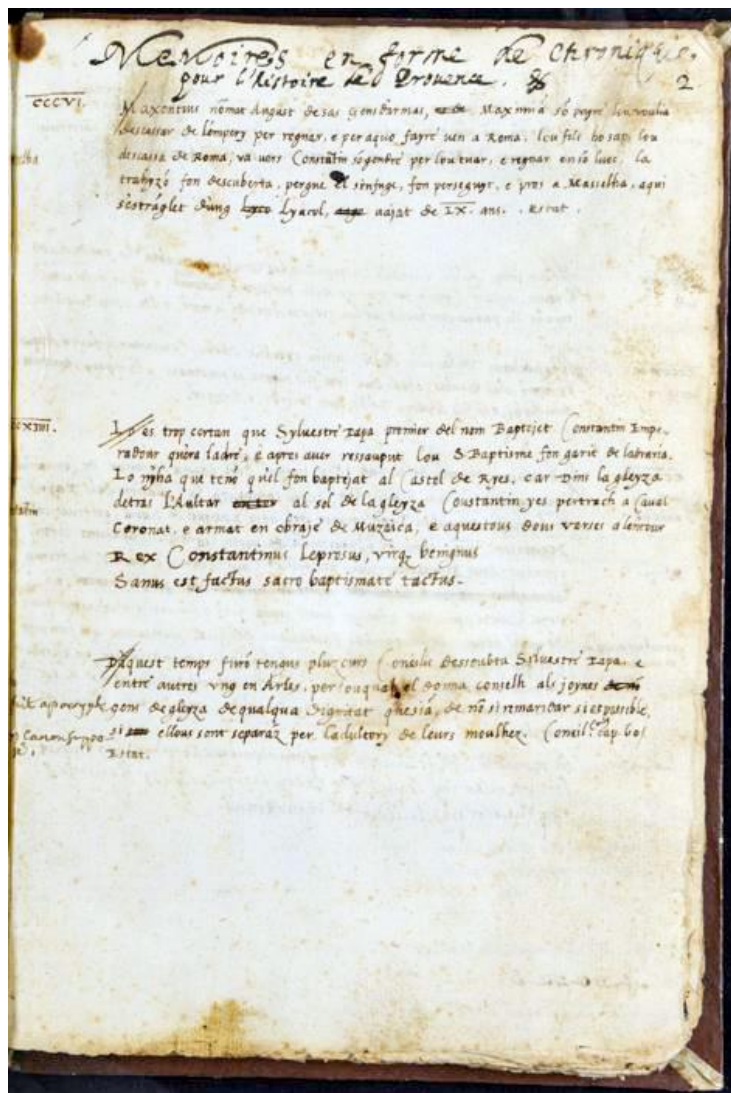 Memoires en forme de Chronique,
pour l'Histoire de Provence.
2
CCCVI.
Maxentius nōmat August de sas Gensdarmas, Maximiā sō peyre lou voulia
descassar de lempery per regnar, e per aquo fayre ven a Roma. lou fils ho sap, lou
descassa de Roma, va vers Constātin sō gendre per lou tuar, e regnar en sō luec, la
trahyzō fon descuberta, pergue el s'infuge, fon perseguyt, e pres a Masselha, aqui
sestrāglet dung Lyacol, aajat de LX. ans. . Estat.
Lo es trop certan que Sylvestre Papa premier del nom Baptejet Constantin Empe-
radour qu'era ladre, e apres aver ressauput lou S. Baptisme fon garit de ladraria.
Lo n'yha que tenō qu'el fon baptejat al Castel de Ryes, car Dins la gleyza
detras l'Aultar al sol de la gleyza Constantin yes pertrach a Caval
Coronat, e armat en obraje de Muzaica, e aquestous dous verses alentour
Rex Constantinus leprosus, virq; benignus
Sanus est factus sacro baptismate tactus.
Daquest temps furō tengus pluzours Concilis dessoubta Sylvestre Papa. e
entre autres vng en Arles, per louqual el donna conselh als joynes
gens de gleyza de qualqua dignitat que sia, de nō si remaridar si es possible,
si ellous sont separaz per l'adultery de leurs moulhez. Concil. cap.
Estat.
apocryphe